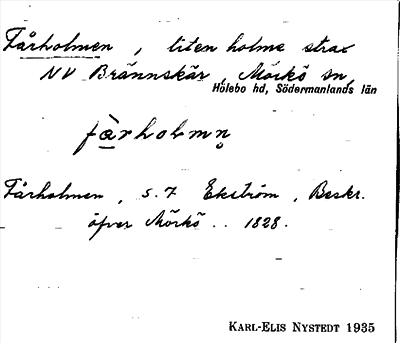 Fårholmen, liten holme strax
NV Brännskär, Mörkö sn,
Hölebo hd, Södermanlands län
fàrholmn̥
Fårholmen, s. 7 Ekström, Beskr.
öfver Mörkö .. 1828.
KARL-ELIS NYSTEDT 1935